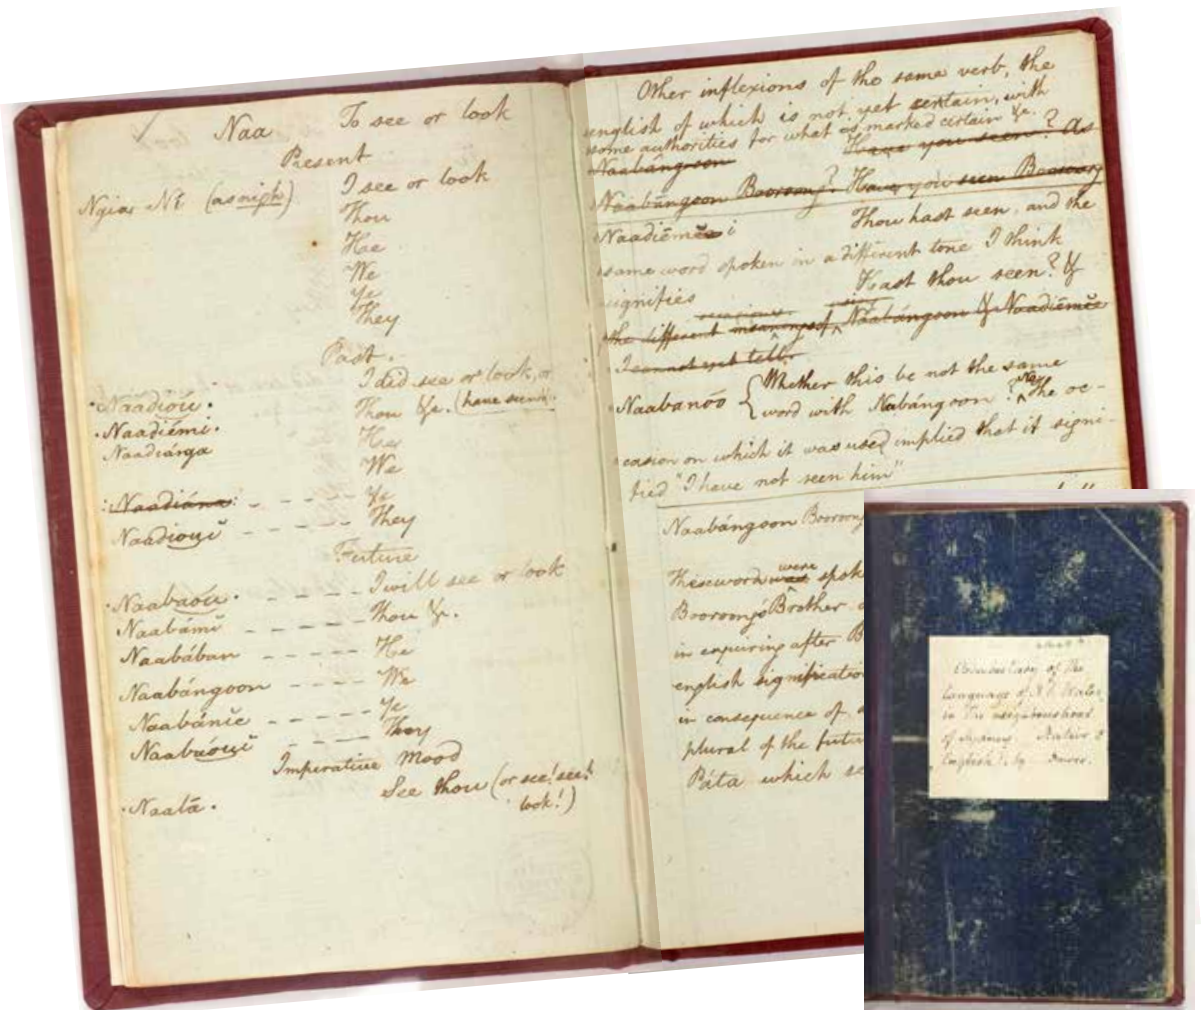 Naa To see or look
Present
Ngia, Ni (as niph) I see or look
Thou
He
We
Ye
They
Past.
Naadióu. I did see or look, or
Naadiémi. Thou &c. (have seen)
Naadiánga He
We
Naadiána - - - - Ye
Naadiouĭ - - - - They
Future
Naabaóu. - - - - I will see or look
Naabámĭ - - - - Thou &c.
Naabában - - - - He
Naabángoon - - - - We
Naabánĭe - - - - Ye
Naabaóuĭ - - - - They
Imperative Mood
Naalā. See thou (or see! see!
look!)
Other inflexions of the same verb, the
english of which is not yet certain, with
some authorities for what is marked certain &c.
Naabángoon Have you seen? As
Naabángoon Booroong? Have you seen Booroong
Naadiémĕe i Thou hast seen, and the
same word spoken in a different tone I think
signifies Hast thou seen? &
the different meanings of Naabángoon & Naadiémĕe
I cannot yet tell.
Naabanóo { Whether this be not the same
word with Nabángoon? The oc-
casion on which it was used implied that it signi-
fied "I have not seen him"
Naabángoon Booroong
These word was were spok
Booroong's Brother
in enquiring after B
english significatio
in consequence of
plural of the futu
Páta which se
Vocabulary of the
language of N. S. Wales
in the neighbourhood
of Sydney. Native &
English, by Dawes.